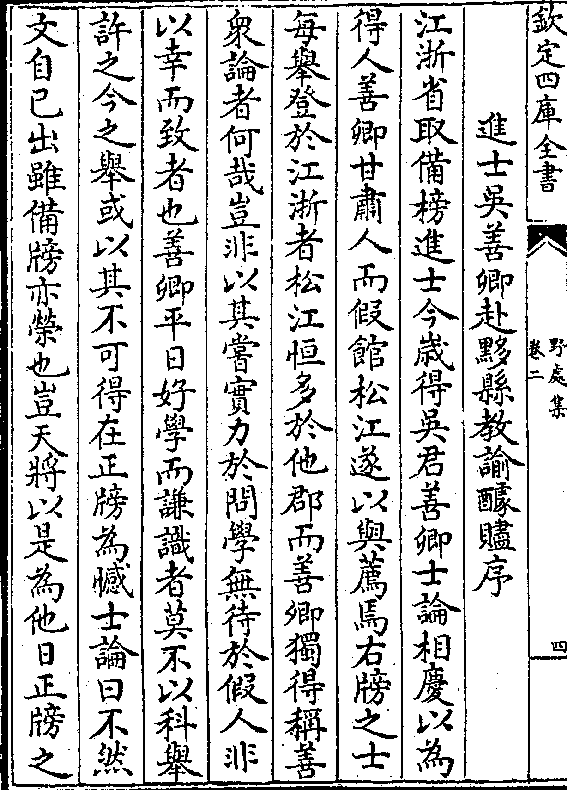 欽定四庫全書
野處集
卷二
四
進士吳善卿赴黟縣教諭醵贐序
江浙省取備榜進士今歳得吳君善卿士論相慶以為
得人善卿甘肅人而假館松江遂以與薦焉右牓之士
每舉登於江浙者松江恒多於他郡而善卿獨得稱善
衆論者何哉豈非以其嘗實力於問學無待於假人非
以幸而致者也善卿平日好學而謙識者莫不以科舉
許之今之舉或以其不可得在正牓為憾士論曰不然
文自已出雖備牓亦榮也豈天將以是為他日正牓之